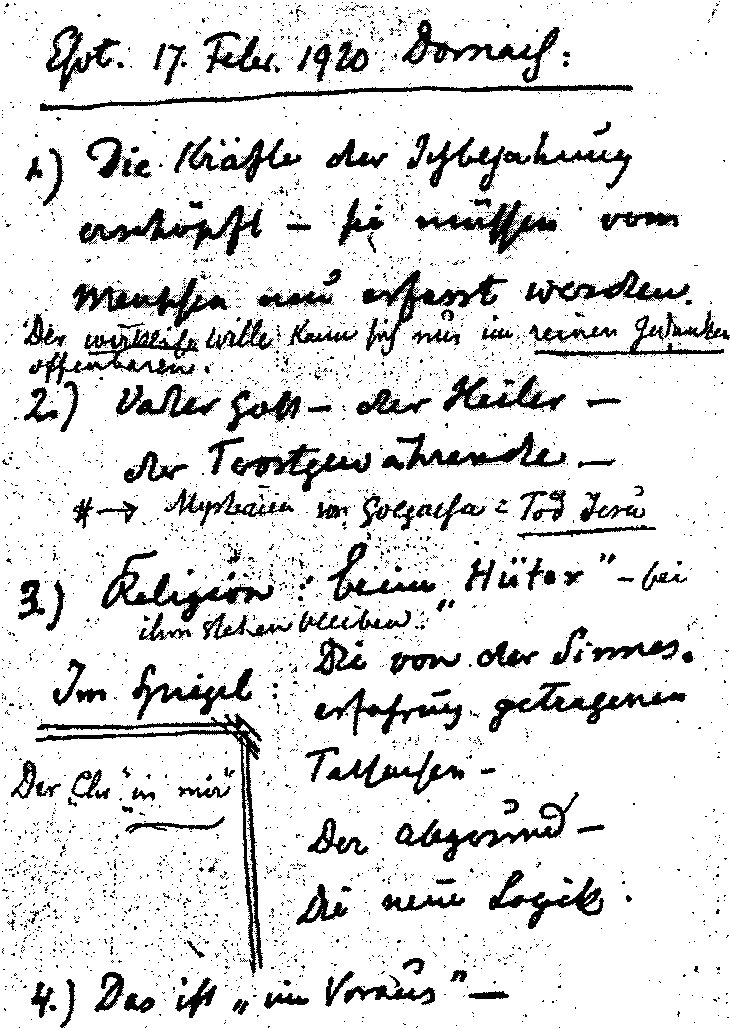 Esot. 17. Febr. 1920 Dornach:
1.) Die Kräfte der Ichbejahung
erschöpft – sie müssen vom
Menschen neu erfasst werden.
Der wirkliche Wille kann sich nur im reinen Gedanken
offenbaren.
2.) Vater Gott – der Heiler –
der Trostgewährende –
# → Mysterium von Golgatha = Tod Jesu
3.) Religion: beim „Hüter" – bei
ihm stehen bleiben.
Im Spiegel:
Die von der Sinnes-
erfahrung getragenen
Tatsachen –
Der Abgrund –
Die neue Logik.
Der „Chr „in mir"
4.) Das ist „im Voraus" –